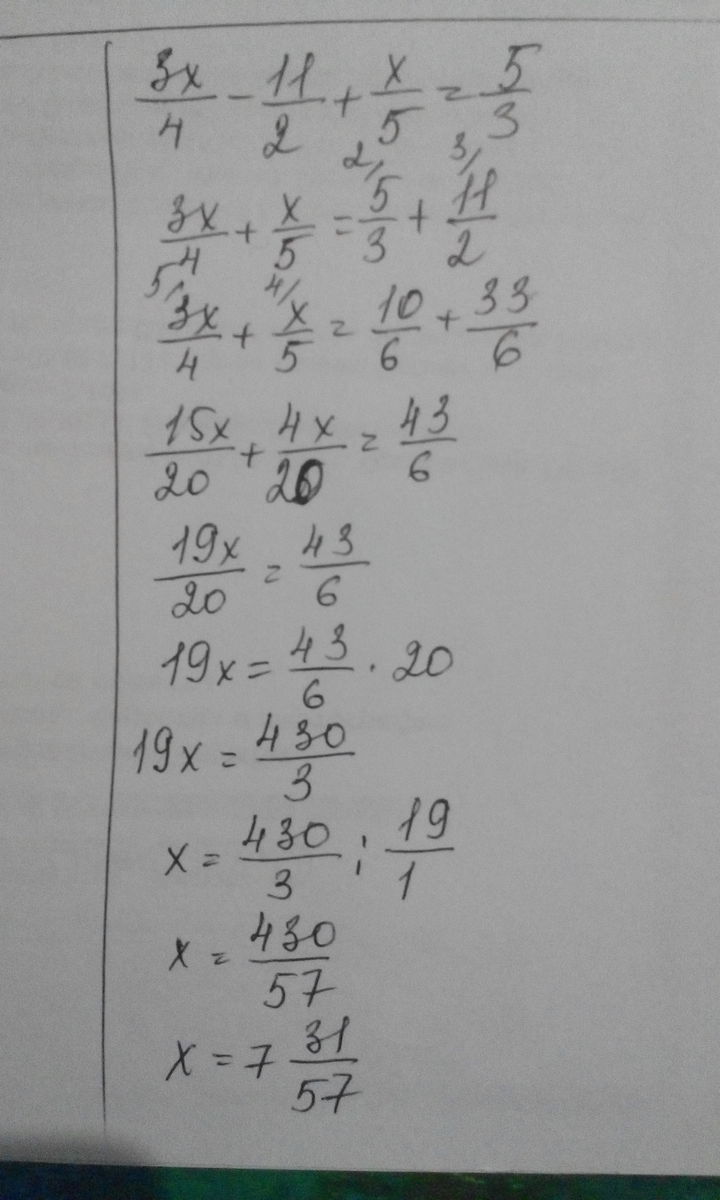 3x/4 - 11/2 + x/5 = 5/3
2/ 3/
3x/4 + x/5 = 5/3 + 11/2
5/ 4/
3x/4 + x/5 = 10/6 + 33/6
15x/20 + 4x/20 = 43/6
19x/20 = 43/6
19x = 43/6 · 20
19x = 430/3
x = 430/3 : 19/1
x = 430/57
x = 7 31/57